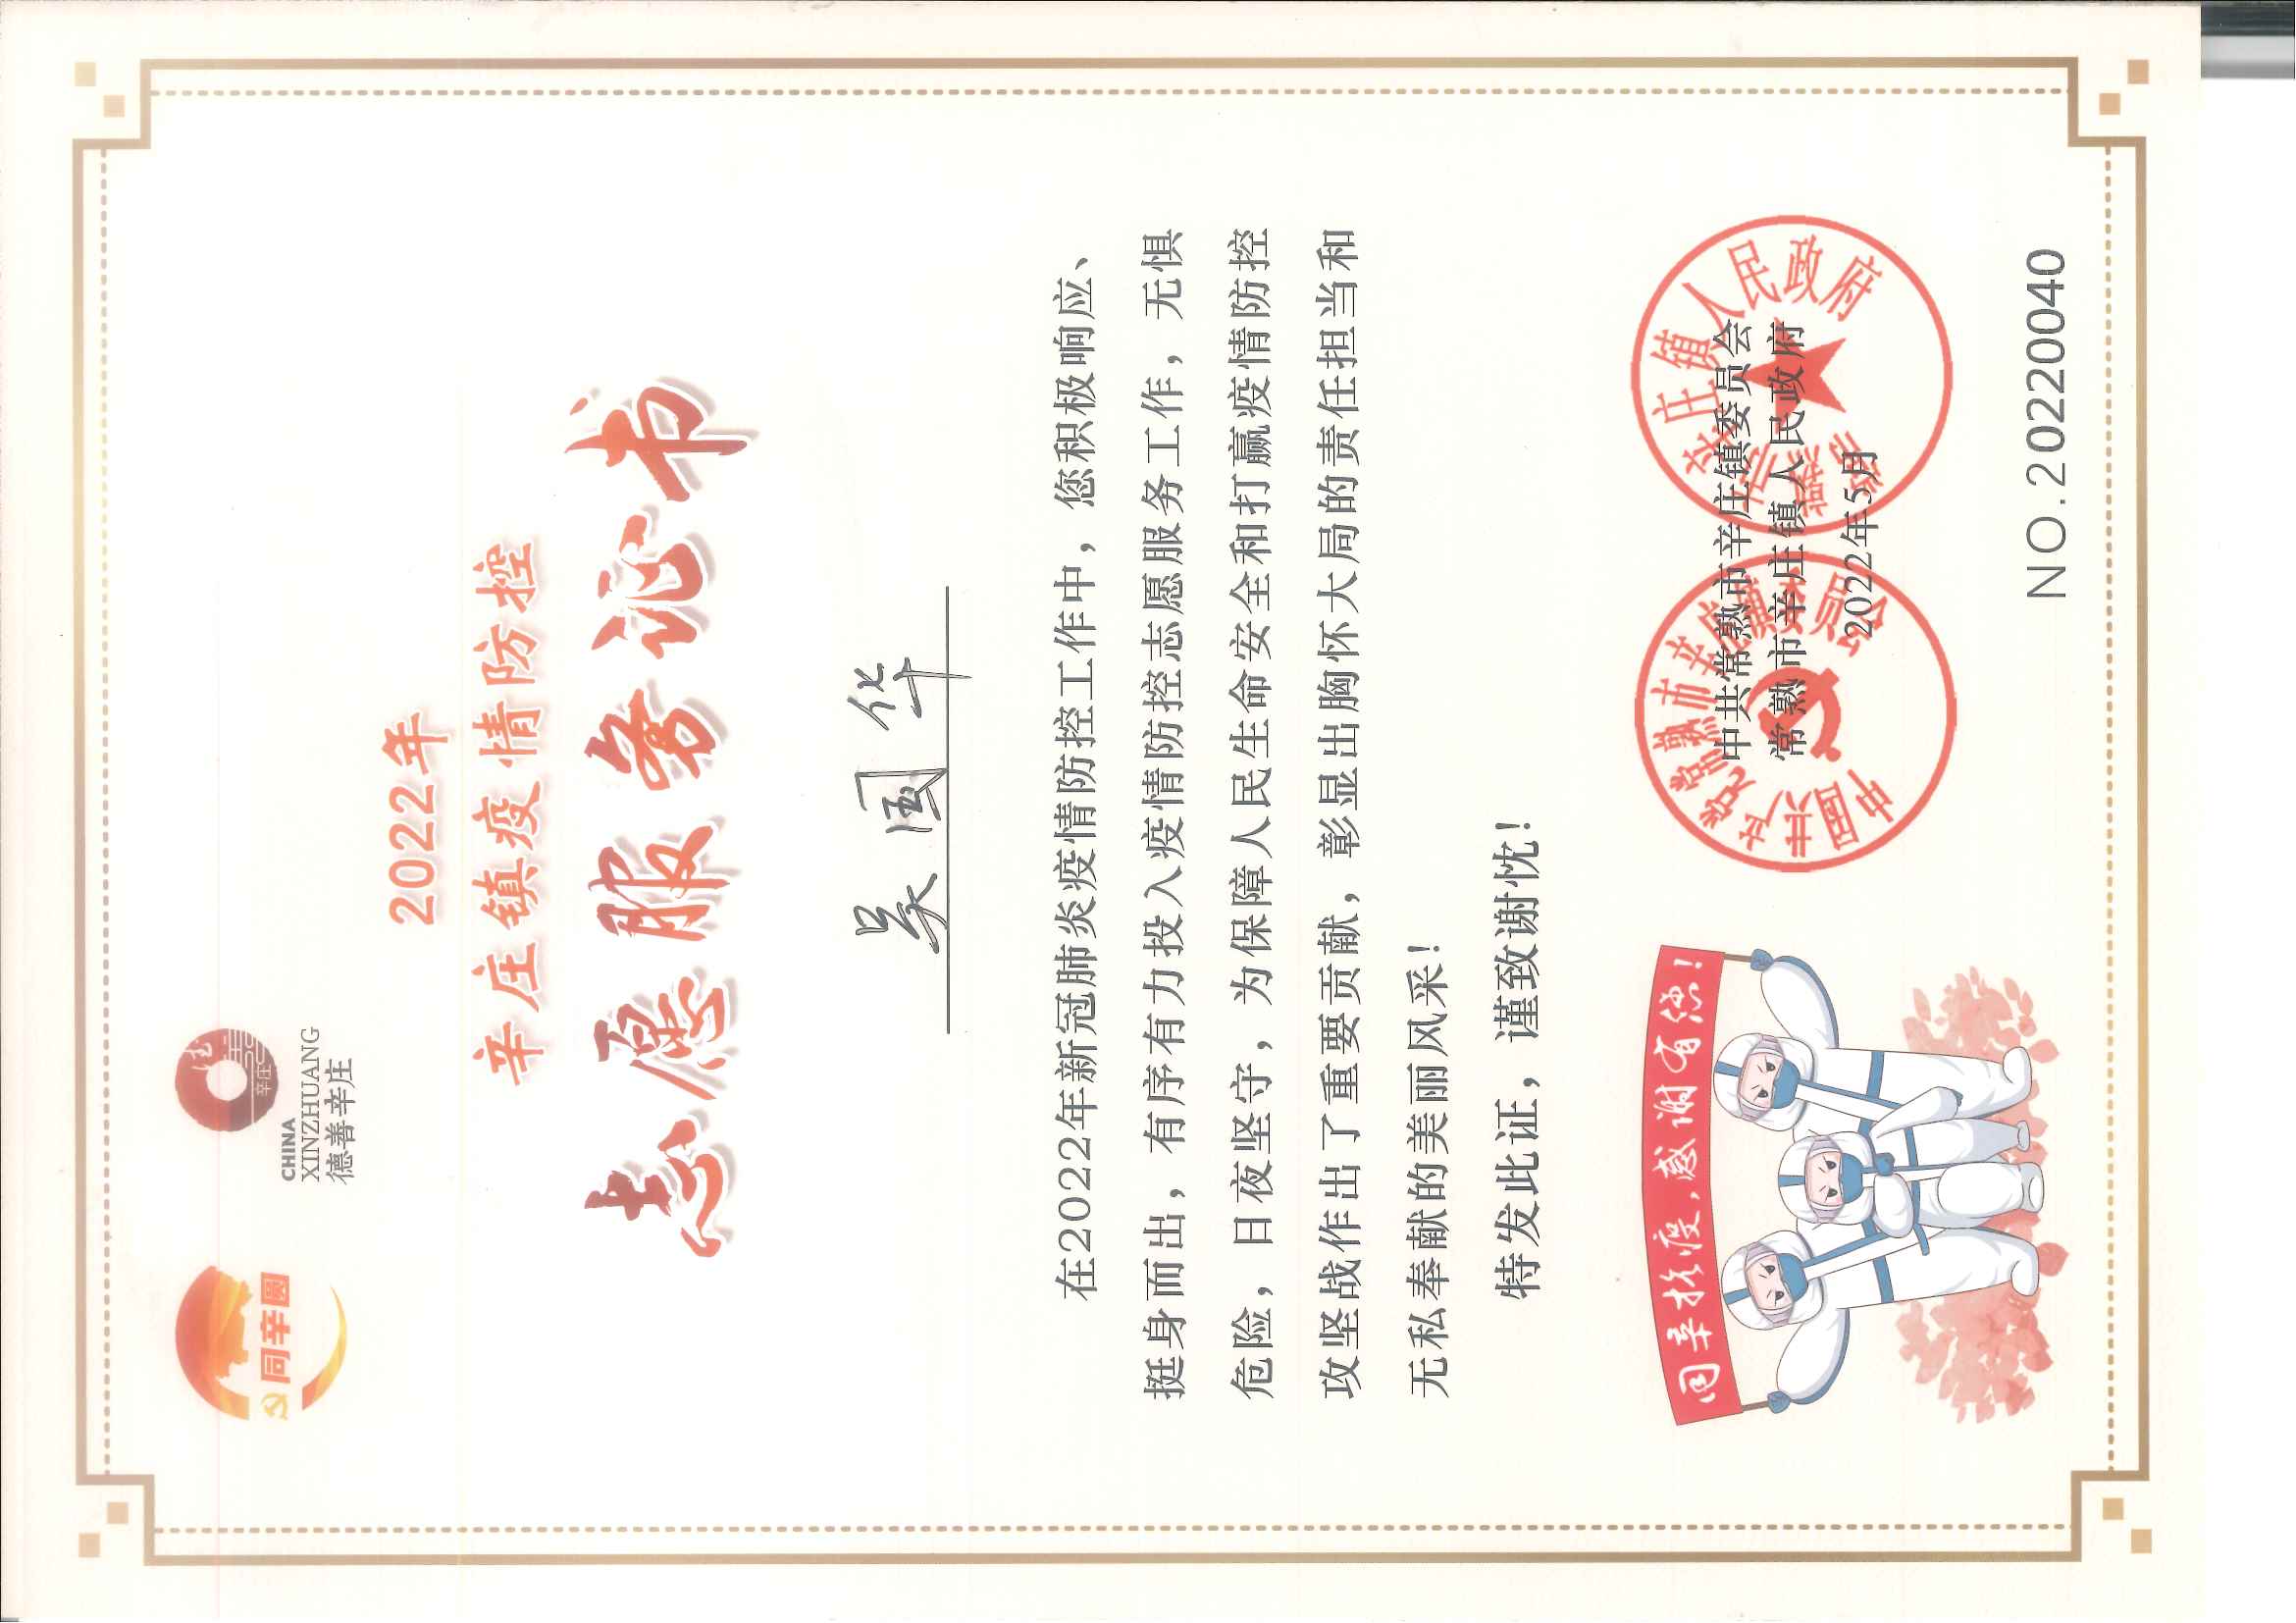 同辛圆
辛庄
CHINA
XINZHUANG
德善辛庄
2022年
辛庄镇疫情防控
志愿服务证书
吴国华
在2022年新冠肺炎疫情防控工作中，您积极响应、
挺身而出，有序有力投入疫情防控志愿服务工作，无惧
危险，日夜坚守，为保障人民生命安全和打赢疫情防控
攻坚战作出了重要贡献，彰显出胸怀大局的责任担当和
无私奉献的美丽风采！
特发此证，谨致谢忱！
同辛抗疫，感谢有您！
中国共产党常熟市辛庄镇委员会
常熟市辛庄镇人民政府
中共常熟市辛庄镇委员会
常熟市辛庄镇人民政府
2022年5月
NO.20220040